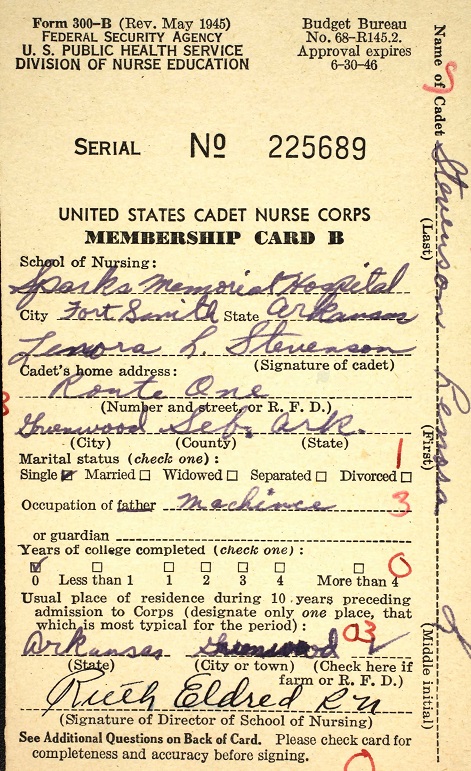 Form 300-B (Rev. May 1945)
FEDERAL SECURITY AGENCY
U. S. PUBLIC HEALTH SERVICE
DIVISION OF NURSE EDUCATION
Budget Bureau
No. 68-R145.2.
Approval expires
6-30-46
SERIAL No 225689
UNITED STATES CADET NURSE CORPS
MEMBERSHIP CARD B
School of Nursing:
Sparks Memorial Hospital
City Fort Smith State Arkansas
Lenora L. Stevenson
(Signature of cadet)
Cadet's home address:
Route One
(Number and street, or R. F. D.)
Greenwood Seb. Ark.
(City) (County) (State)
Marital status (check one): 1
Single Married Widowed Separated Divorced
Occupation of father 3
or guardian
Years of college completed (check one):
0 Less than 1 1 2 3 4 More than 4 0
Usual place of residence during 10 years preceding
admission to Corps (designate only one place, that
which is most typical for the period): 03
Arkansas Greenwood
(State) (City or town) (Check here if
farm or R. F. D.)
Ruth Eldred RN
(Signature of Director of School of Nursing)
See Additional Questions on Back of Card. Please check card for
completeness and accuracy before signing.
Name of Cadet Stevenson Lenora L
(Last) (First) (Middle initial)